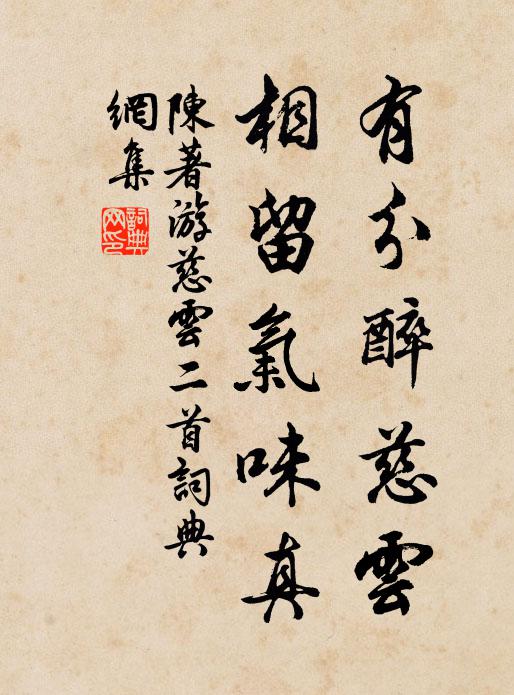 有分醉慈雲
相留氣味真
陳著游慈雲二首詞典
網集
詞典
网印